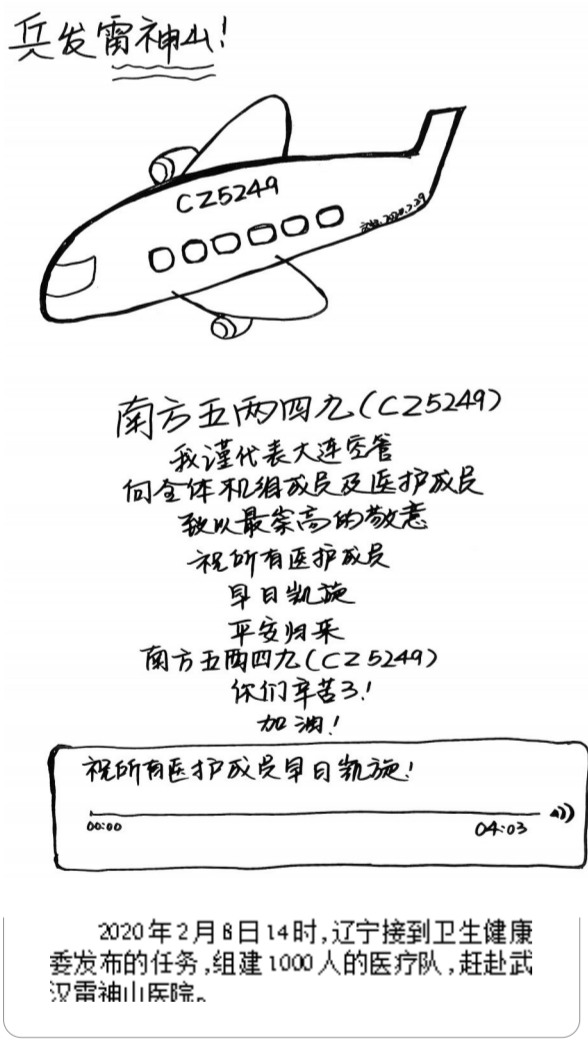 兵发雷神山!
CZ5249
2020.2.29
南方五两四九(CZ5249)
我谨代表大连空管
向全体机组成员及医护成员
致以最崇高的敬意
祝所有医护成员
早日凯旋
平安归来
南方五两四九(CZ5249)
你们辛苦了!
加油!
祝所有医护成员早日凯旋!
00:00
04:03
2020年2月8日14时,辽宁接到卫生健康
委发布的任务,组建1000人的医疗队,赶赴武
汉雷神山医院。